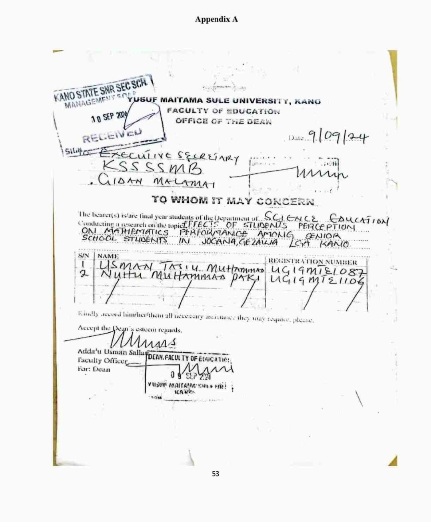 Appendix A
KANO STATE SNR SEC SCH
MANAGEMENT
YUSUF MAITAMA SULE UNIVERSITY, KANO
FACULTY OF EDUCATION
OFFICE OF THE DEAN
10 SEP
RECEIVED
Date 9/09/24
EXECUTIVE SECRETARY
KSSSSMB
GIDAN MALAMAI
TO WHOM IT MAY CONCERN
The bearer(s) is/are final year students of the Department of SCIENCE EDUCATION
Conducting a research on the topic EFFECTS OF STUDENTS PERCEPTION
ON MATHEMATICS PERFORMANCE AMONG SENIOR
SCHOOL STUDENTS IN JOGANA, GEZAWA LGA KANO
S/N NAME REGISTRATION NUMBER
1 USMAN TATIU MUHAMMAD UG19MTE1087
2 NUHU MUHAMMAD DAKI UG19MTE1106
Kindly accord him/her/them all necessary assistance they may require, please.
Accept the Dean's esteem regards.
Adda'u Usman
Faculty Officer
For: Dean
DEAN, FACULTY OF EDUCATION
09 SEP
YUSUF MAITAMA SULE
KANO
53